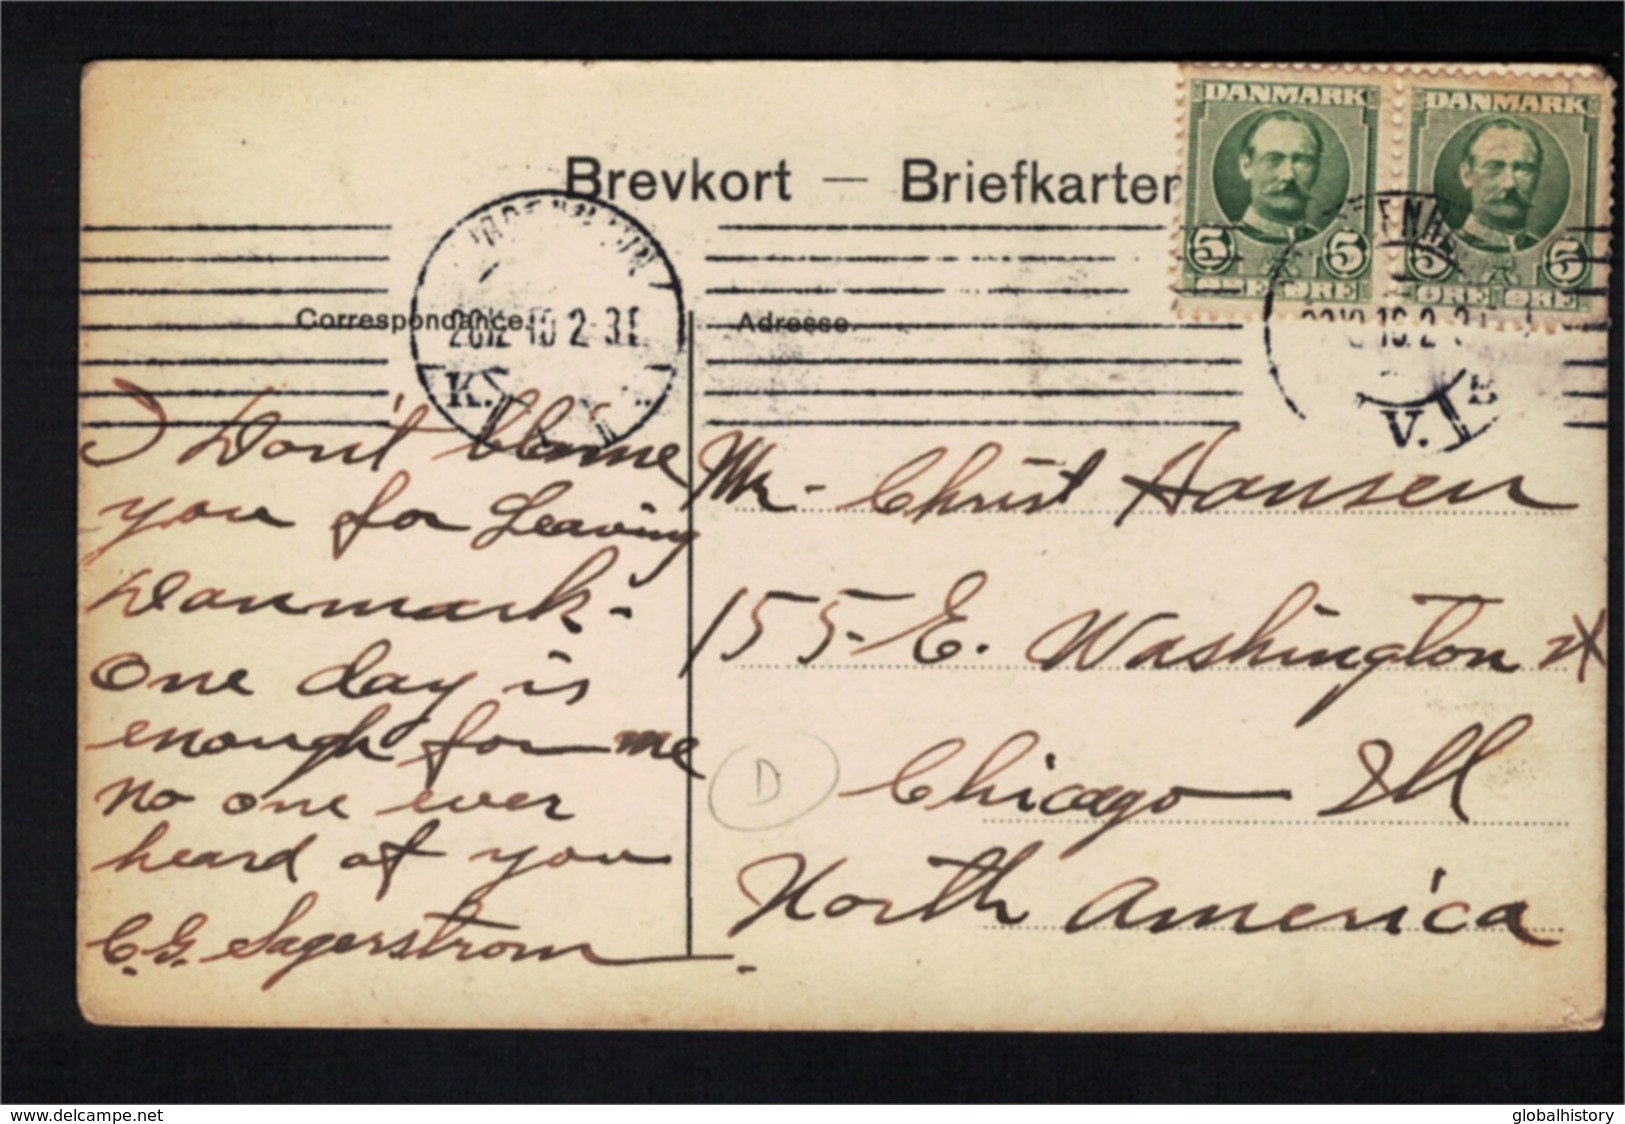 DANMARK DANMARK
Brevkort — Briefkarten
5 5 5 5
ØRE ØRE ØRE ØRE
Correspondance.
Adresse.
2012 10 2-3E
K.
V.
I Don't blame
you for Leaving
Danmark-
One day is
enough for me
No one ever
heard of you
C.G. Sagerstrom
Mr. Christ Hansen
155 E. Washington st
Chicago Ill
North America
D
www.delcampe.net
globalhistory